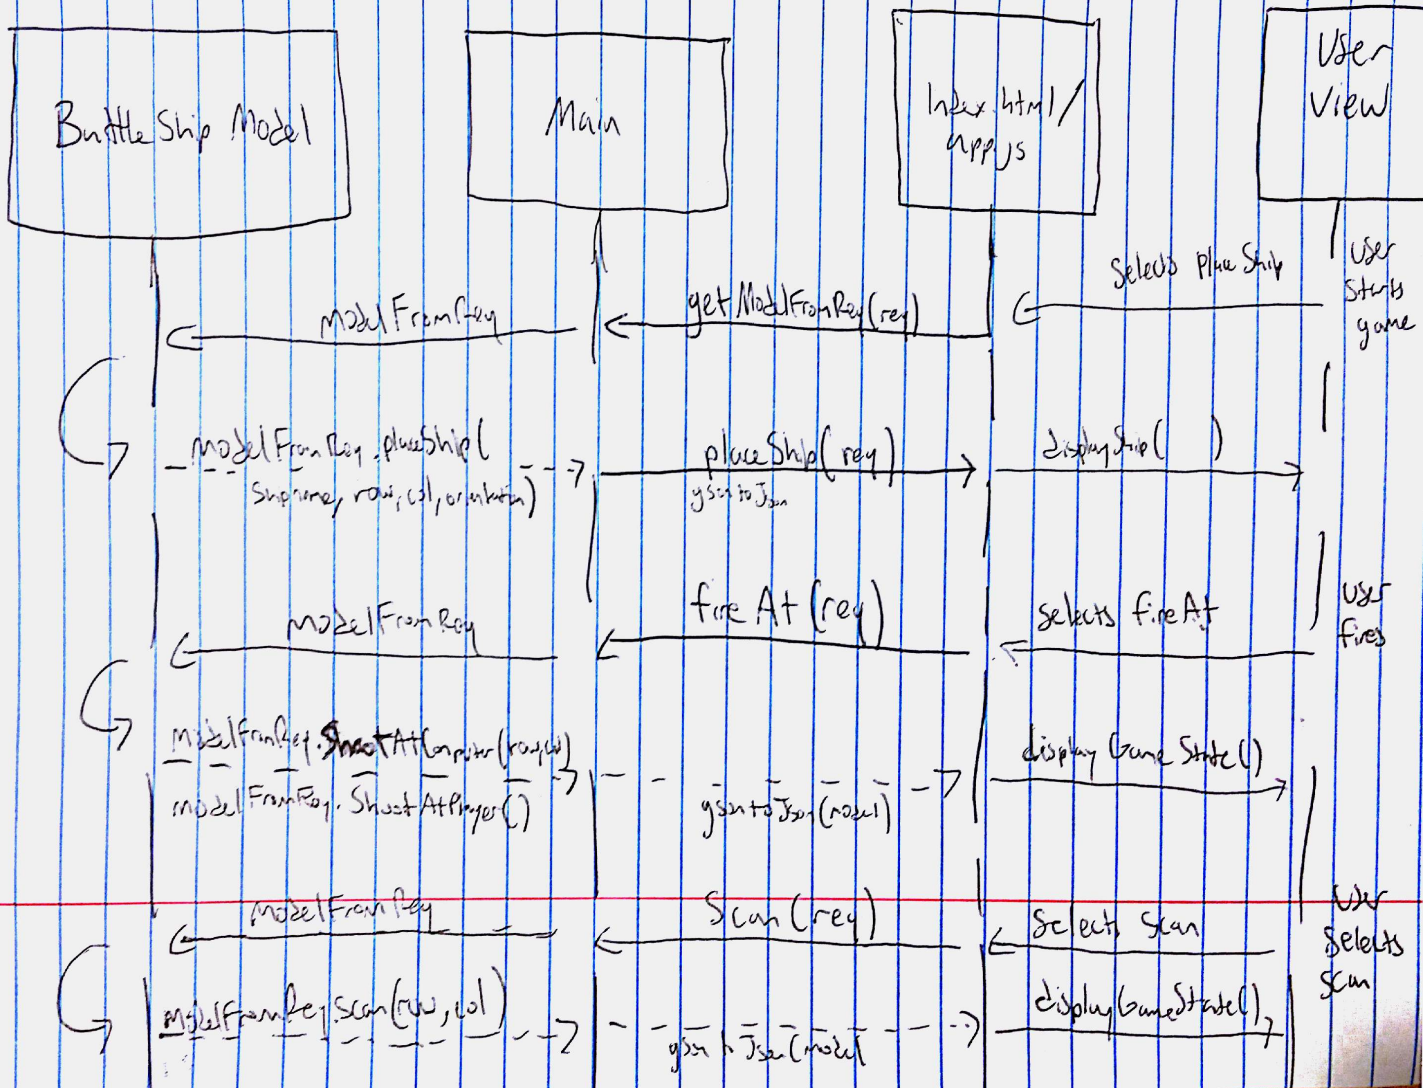 BattleShip Model
Main
Index.html/
app.js
User
View
Selects place Ship
User
Starts
game
getModelFromReq(req)
modelFromReq
modelFromReq.placeShip(
Shipname, row, col, orientation)
placeShip(req)
gson to Json
displayShip( )
User
fires
selects fireAt
fireAt(req)
modelFromReq
modelFromReq.ShootAtComputer(row,col)
modelFromReq.ShootAtPlayer()
gson to Json(model)
displayGameState()
User
Selects
Scan
Selects Scan
Scan(req)
modelFromReq
modelFromReq.scan(row,col)
gson to Json(model
displayGameState()